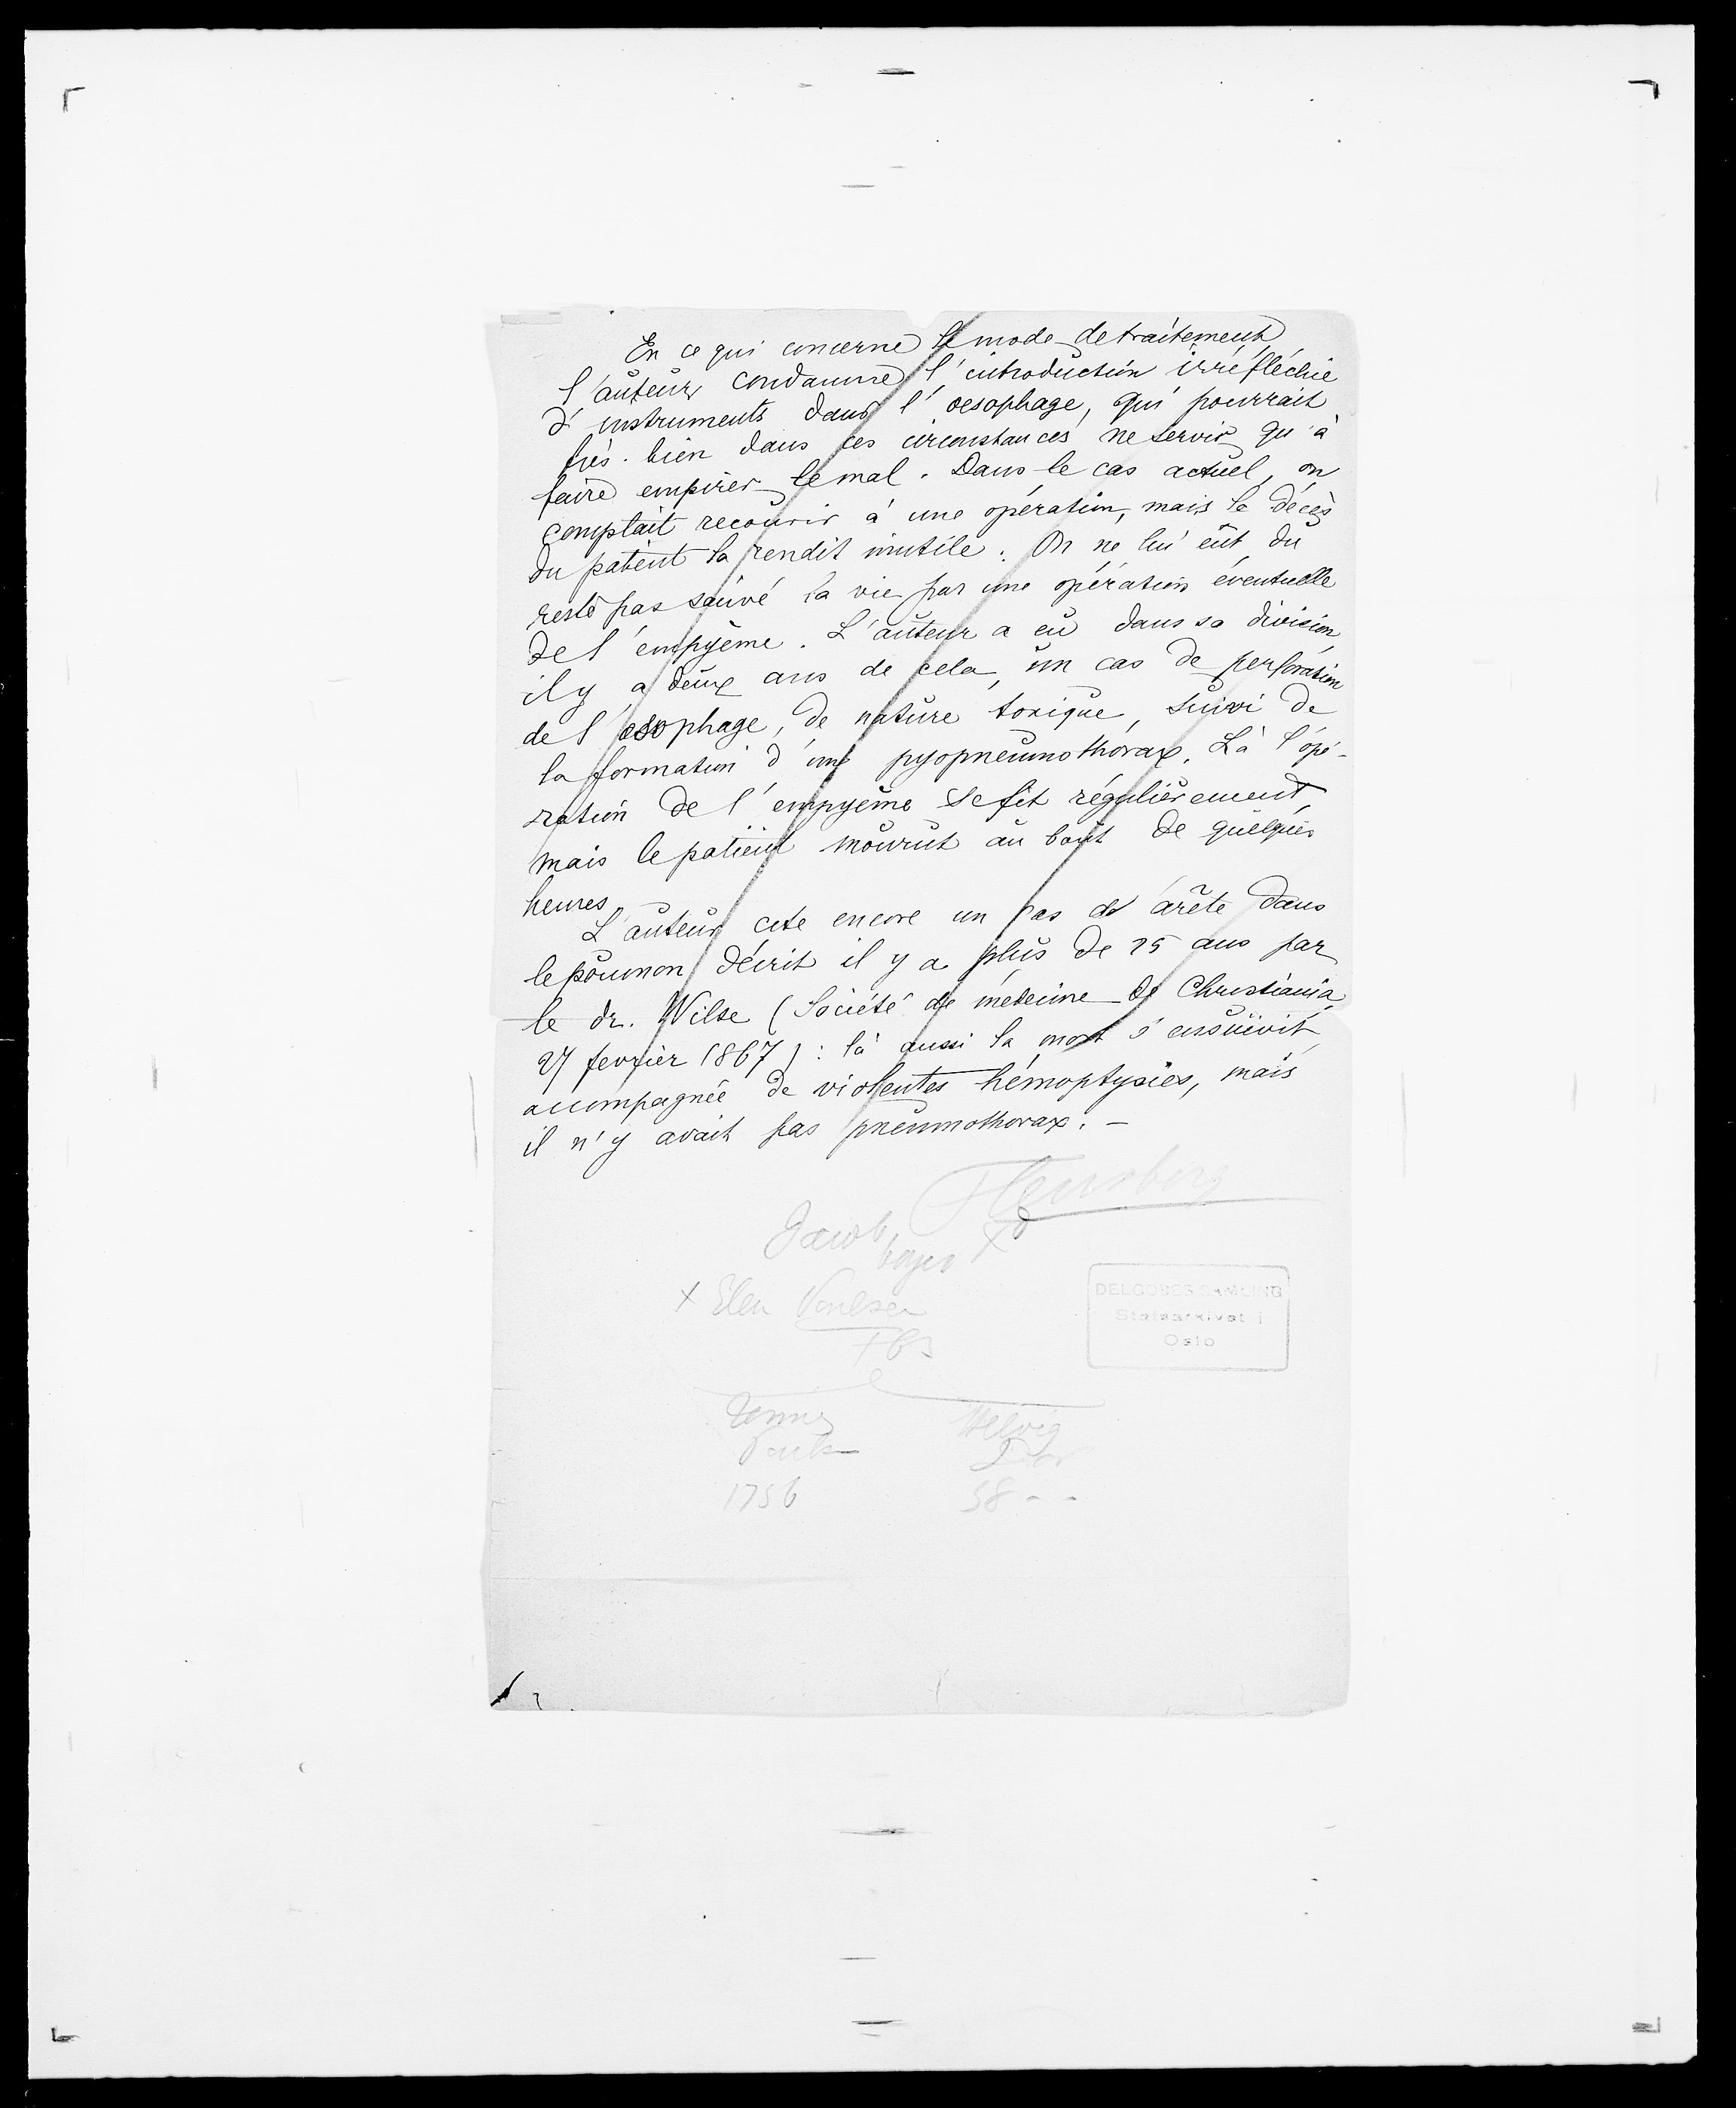 En ce qui concerne le mode de traitement,
l'auteur condamne l'introduction irréfléchie
d'instruments dans l'oesophage, qui pourrait
très-bien dans ces circonstances ne servir qu'à
faire empirer le mal. Dans le cas actuel, on
comptait recourir à une opération, mais le décès
du patient la rendit inutile. On ne lui eût du
reste pas sauvé la vie par une opération éventuelle
de l'empyème. L'auteur a eu dans sa division,
il y a deux ans de cela, un cas de perforation
de l'esophage, de nature toxique, suivi de
la formation d'un pyopneumothorax. Là l'opé-
ration de l'empyème se fit régulièrement,
mais le patient mourut au bout de quelques
heures.
L'auteur cite encore un cas d'arête dans
le poumon décrit il y a plus de 25 ans par
le dr. Wilse (Société de médecine de Christiania,
27 fevrier 1867): là aussi la mort s'ensuivit,
accompagnée de violentes hémoptysies, mais
il n'y avait pas pneumothorax. —
Flensborg
Jacob
x Elen Poulsen
DELGOBES SAMLING
Statsarkivet i
Oslo
Helvig
1756 58 - -